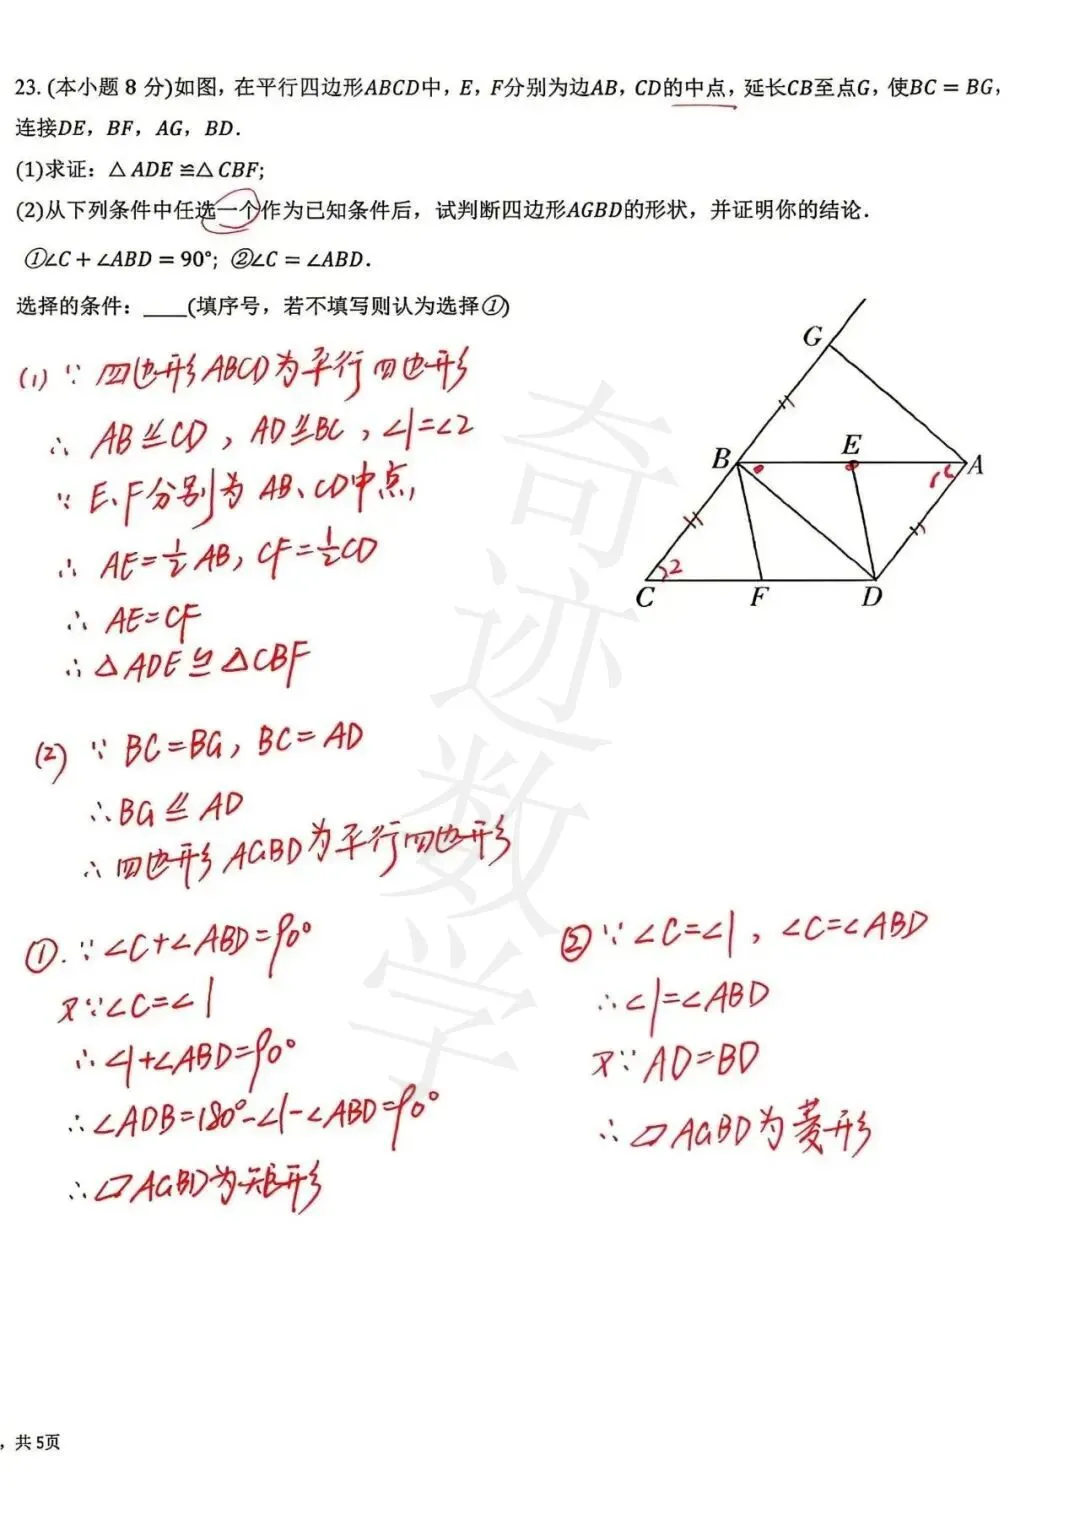 23. (本小题 8 分)如图，在平行四边形ABCD中，E，F分别为边AB，CD的中点，延长CB至点G，使BC = BG，
连接DE，BF，AG，BD．
(1)求证：△ ADE ≌△ CBF;
(2)从下列条件中任选一个作为已知条件后，试判断四边形AGBD的形状，并证明你的结论．
①∠C + ∠ABD = 90°; ②∠C = ∠ABD．
选择的条件：____(填序号，若不填写则认为选择①)
G
B
E
A
1
2
C
F
D
(1) ∵ 四边形ABCD为平行四边形
∴ AB≌CD，AD≌BC，∠1=∠2
∵ E、F分别为 AB、CD中点，
∴ AE=½AB，CF=½CD
∴ AE=CF
∴ △ADE≌△CBF
(2) ∵ BC=BG，BC=AD
∴BG≌AD
∴四边形AGBD为平行四边形
①.∵∠C+∠ABD=90°
又∵∠C=∠1
∴∠1+∠ABD=90°
∴∠ADB=180°-∠1-∠ABD=90°
∴▱AGBD为矩形
②∵∠C=∠1，∠C=∠ABD
∴∠1=∠ABD
又∵AD=BD
∴▱AGBD为菱形
奇迹数学
，共 5页